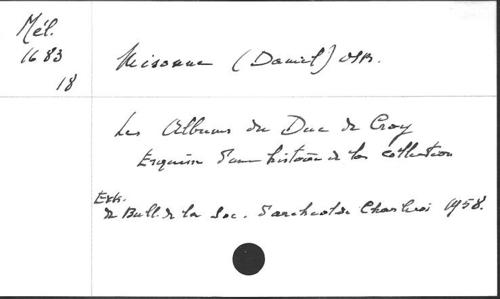 Mél.
1683
18
Misonne (Daniel) OSB.
Les Albums du Duc de Croy
Esquisse d'une histoire de la collection
Extr.
de Bull. de la Soc. d'archéol. de Charleroi 1958.